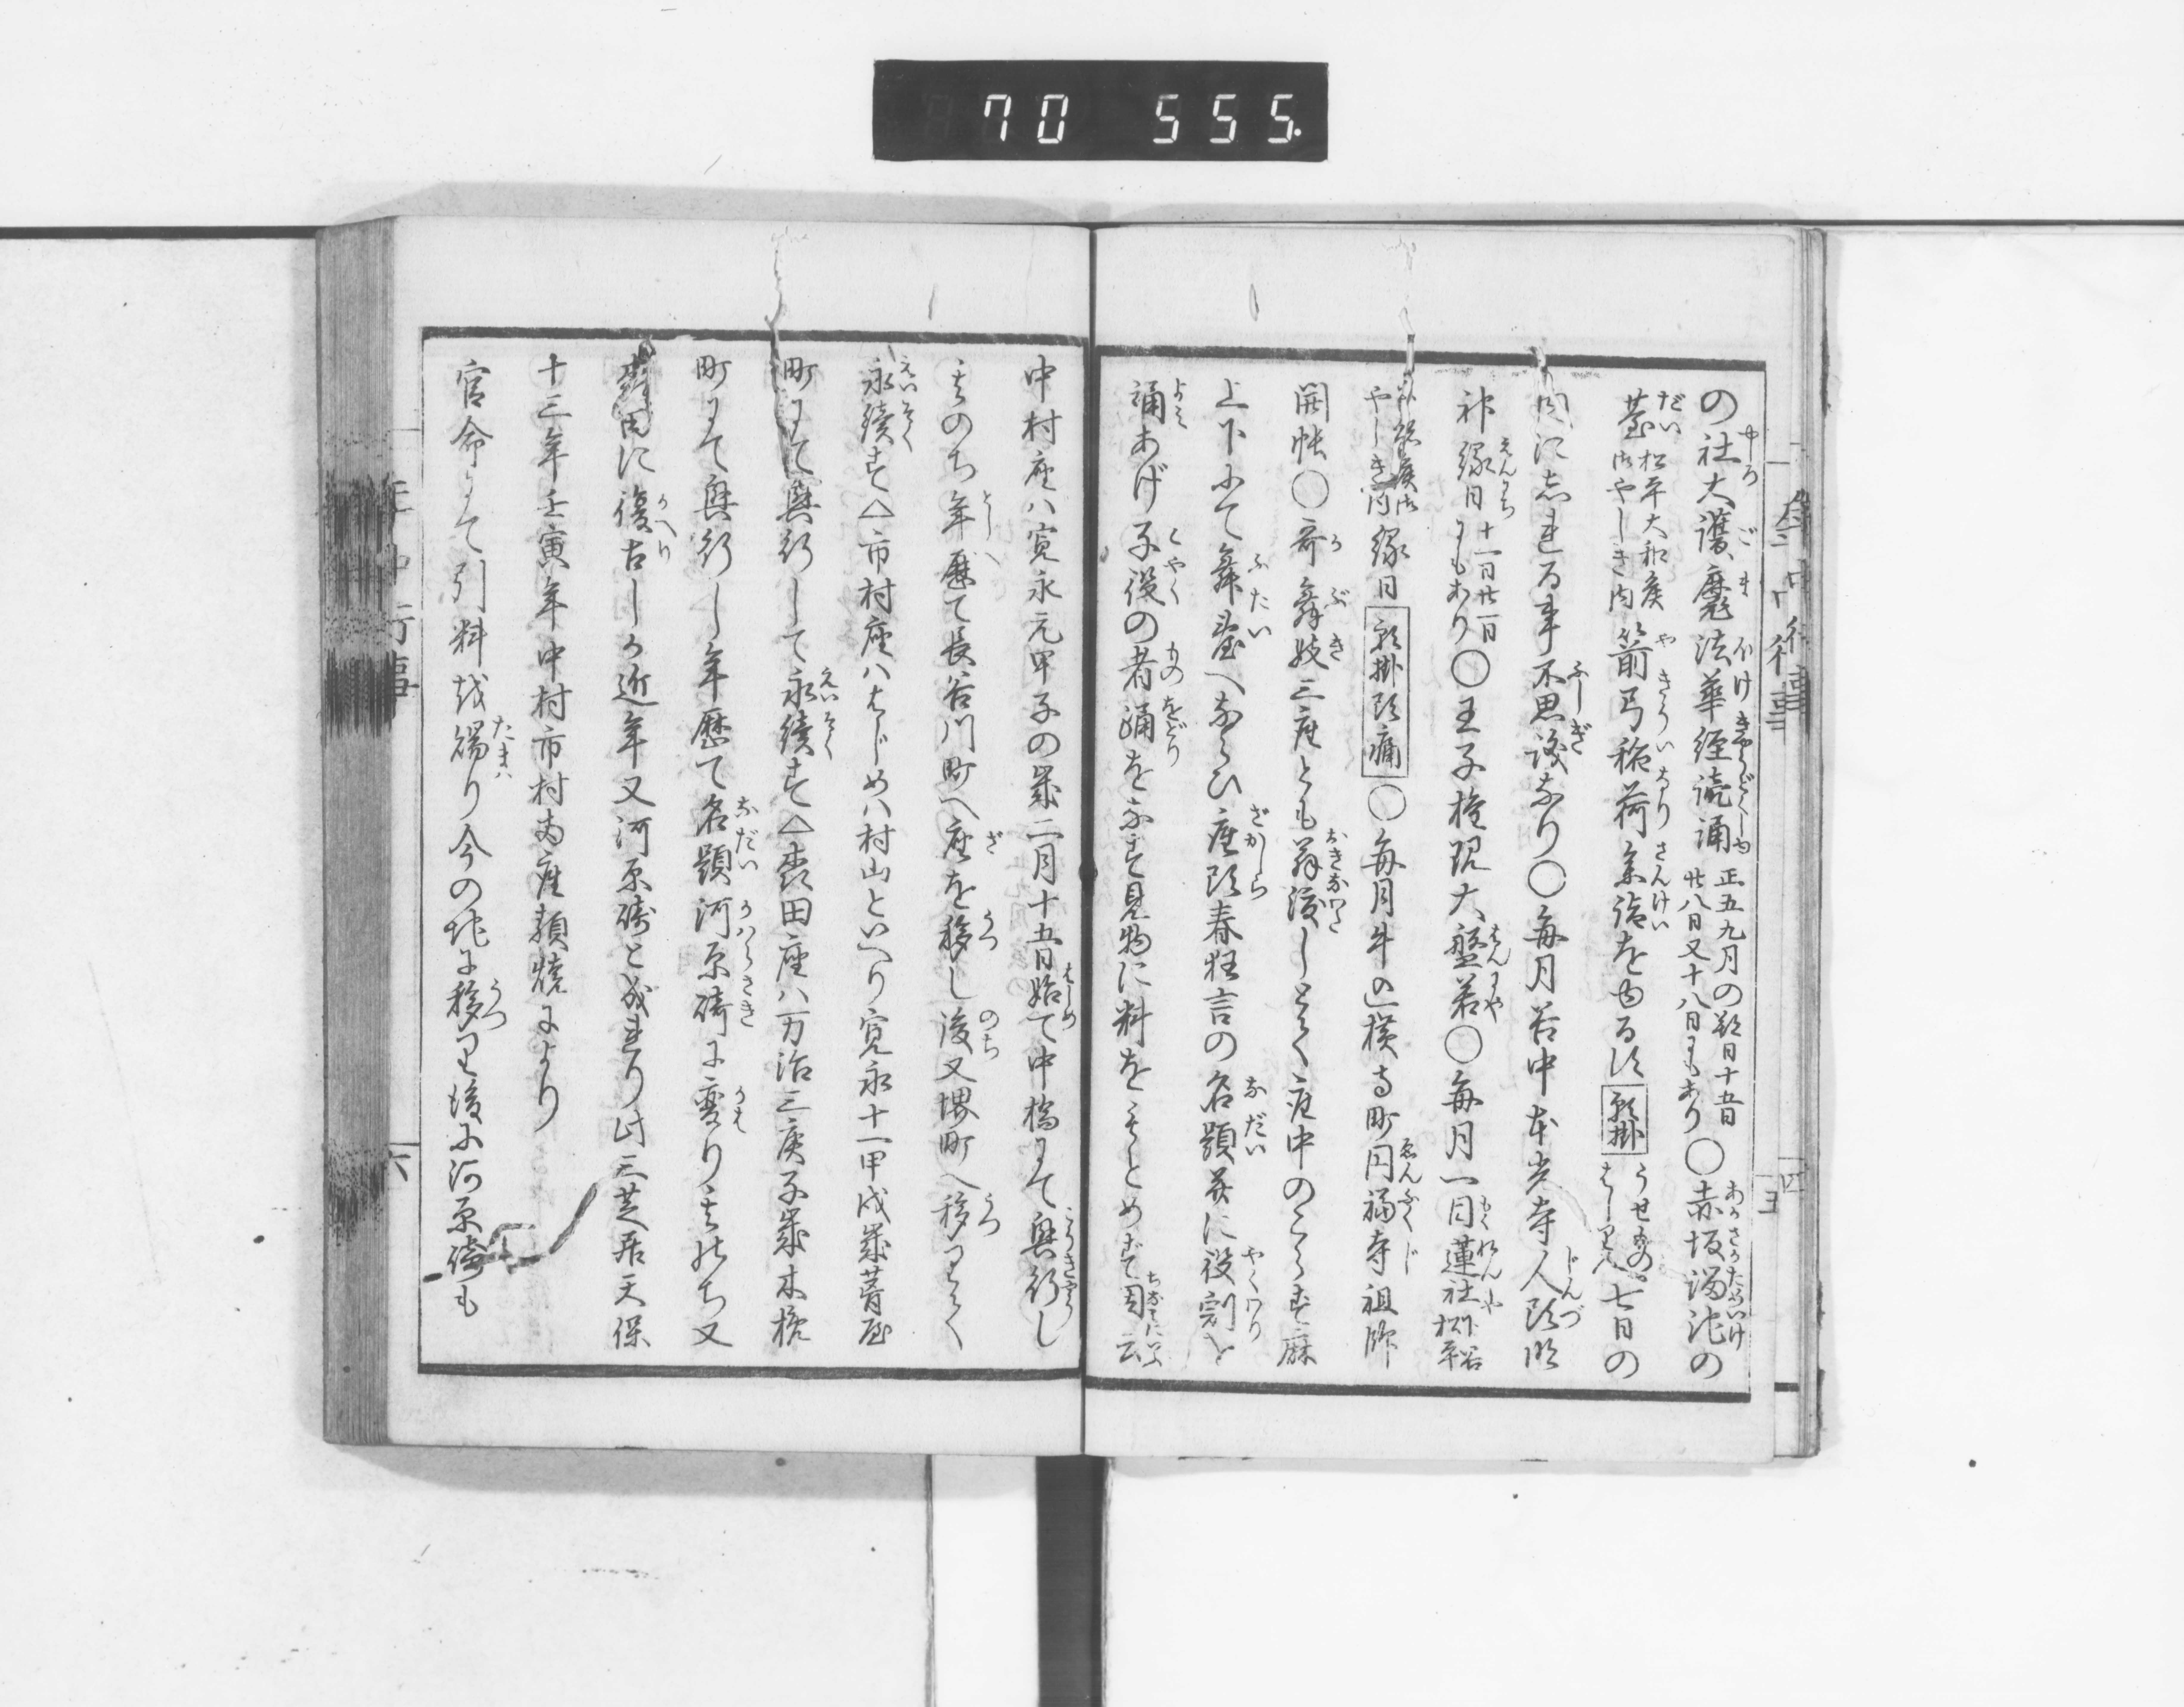 70 555.
の社大護麾法華経読誦正五九月の朔日十五日廿八日又十八日にもあり○赤坂溜池の
台松平大和侯御やしき内箭弓稲荷参詣をゆるす願掛うせものはしり人七日の
内にしれる事不思議なり○毎月谷中本光寺人頭明
神縁日十一日廿一日にもあり○王子権現大盤若○毎月一日目蓮社
やしき内縁日願掛頭痛○毎月牛の横寺町円福寺祖師
開帳○哥舞妓三座とも翁渡しとて座中のこらず麻
上下にて舞台へならひ座頭春狂言の名題并に役割を
誦あげ子役の者踊をなす見物に料をもとめず因云
中村座ハ寛永元甲子の歳二月十五日始て中橋にて興行し
そのち年歴て長谷川町へ座を移し後又堺町へ移りて
永続す△市村座ハはじめハ村山といへり寛永十一甲戌歳葺屋
町にて興行して永続す△森田座ハ万治三庚子歳木挽
町にて興行し年歴て名題河原崎に変りそのち又
森田に復古しか近年又河原崎と成れり此三芝居天保
十三年壬寅年中村市村両座類焼により
官命にて引料を賜り今の地に移り後に河原崎も
年中行事
六